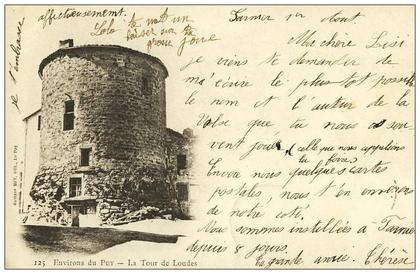 affectueusement.
Lolo te met un
baiser sur ta
grosse joue
Je t'embrasse
1er Août
Ma chère Lisi
je viens te demander de
m'écrire le plus tôt possible
le nom et l'auteur de la
Valse que tu nous a sou
vent joué (celle que nous appelions
Envoie nous quelques cartes
postales, nous t'en enverrons
de notre coté.
Nous sommes installés à
depuis 8 jours.
Ta grande amie. Thérèse
125 Environs du PUY — La Tour de Loudes